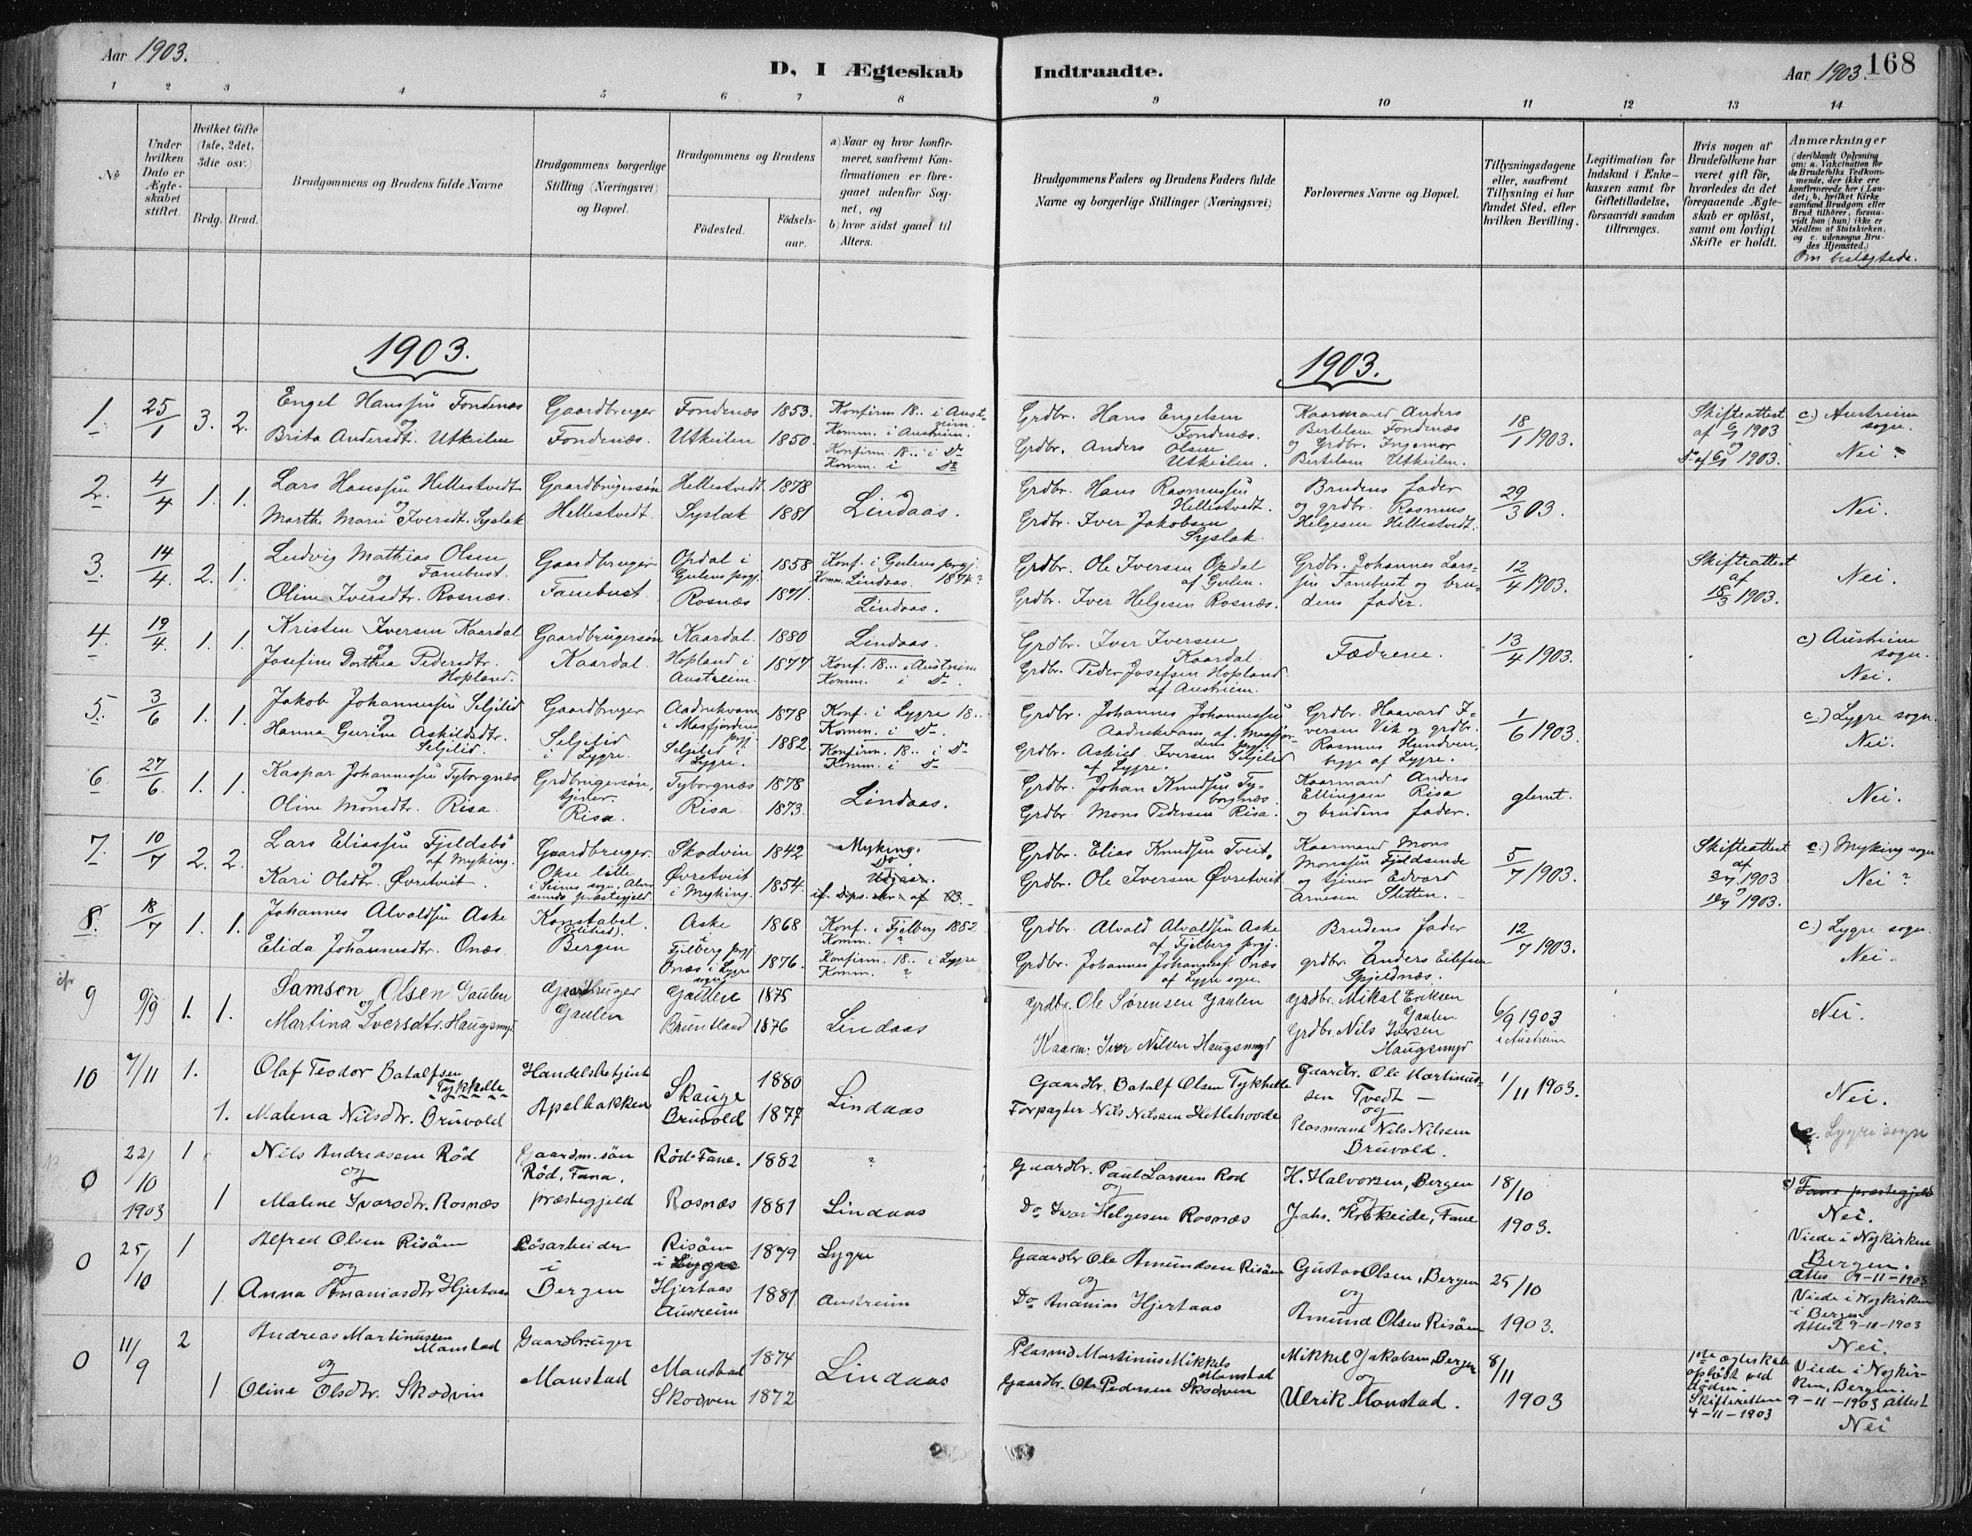 Aar 1903.
D, I Ægteskab Indtraadte.
Aar 1903. 168
1 2 3 4 5 6 7 8 9 10 11 12 13 14
No
Under hvilken Dato er Ægteskabet stiftet.
Hvilket Gifte (1ste, 2det, 3die osv.)
Brdg. Brud.
Brudgommens og Brudens fulde Navne
Brudgommens borgerlige Stilling (Næringsvei) og Bopæl.
Brudgommens og Brudens
Födested. Födselsaar.
a) Naar og hvor konfirmeret, saafremt Konfirmationen er foregaaet udenfor Sognet, og
b) hvor sidst gaaet til Alters.
Brudgommens Faders og Brudens Faders fulde Navne og borgerlige Stillinger (Næringsvei)
Forlovernes Navne og Bopæl.
Tillysningsdagene eller, saafremt Tillysning ei har fundet Sted, efter hvilken Bevilling.
Legitimation for Indskud i Enkekassen samt for Giftetilladelse, forsaavidt saadan tiltrænges.
Hvis nogen af Brudefolkene har været gift før, hvorledes da det foregaaende Ægteskab er oplöst, samt om lovligt Skifte er holdt.
Anmærkninger
(deriblandt Oplysning om: a. Vakcination for de Brudefolks Vedkommende, der ikke ere konfirmerede her i Landet; b. hvilket Kirkesamfund Brudgom eller Brud tilhörer, forsaavidt han (hun) ikke er Medlem af Statskirken, og c. udensogns Brudes Hjemsted.)
Om beslægtede.
1903. 1903.
1. 25/1 3. 2. Engel Hanssøn Fondenæs og Brita Andersdt. Utkeilen
Gaardbruger Fondenæs.
Fondenæs 1853. Utkeilen 1850.
Konfirm. 18.. i Austreim. Komm. i Austreim. Konfirm. 18.. i Do Komm. i Do
Grdbr. Hans Engelsen Fondenæs. Grdbr. Anders Olsen Utkeilen.
Kaarmand Anders Bertelsen Fondenæs og Grdbr. Ingemar Bertelsen Utkeilen.
18/1 1903.
Skifteattest af 1903 og Do af 1903.
c.) Austreim sogn. Nei
2. 4/4 1. 1. Lars Hanssøn Hellestvedt og Marthe Marie Iversdt. Syslak
Gaardbrugersøn Hellestvedt.
Hellestvedt 1878 Syslak 1881
Lindaas.
Grdbr. Hans Rasmussøn Hellestvedt. Grdbr. Iver Jakobsen Syslak.
Brudens fader og grdbr. Rasmus Helgesen Hellestvedt.
29/3 03.
Nei.
3. 14/4. 2. 1. Ludvig Mathias Olsen Fanebust. og Oline Iversdtr. Rosnæs.
Gaardbruger Fanebust.
Opdal i Gulens prgj. 1858 Rosnæs 1871.
Konf. i Gulens prgj. 1874? Komm. Lindaas. Lindaas.
Grdbr. Ole Iversen Opdal af Gulen. Grdbr. Iver Helgesen Rosnæs.
Grdbr. Johannes Larssøn Fanebust og brudens fader.
12/4 1903.
Skifteattest af 18/3 1903.
Nei.
4. 19/4. 1. 1. Kristen Iversen Kaardal og Josefine Dorthea Pedersdtr. Hopland.
Gaardbrugersøn Kaardal.
Kaardal. 1880 Hopland i Austreim. 1877
Lindaas. Konf. 18.. i Austreim Komm. i Do.
Grdbr. Iver Iversen Kaardal. Grdbr. Peder Josefsen Hopland af Austreim.
Fædrene.
13/4 1903.
c) Austreim sogn. Nei.
5. 3/6 1. 1. Jakob Johannessøn Seljelid og Hanna Gurine Askildsdtr. Seljelid
Gaardbruger Seljelid i Lygre.
Aadnekvam i Masfjordens prgj. 1878 Seljelid i Lygre. 1882.
Konf. i Lygre 18.. Komm. i Do. Konfirm. 18.. i Do Komm. i Do
Grdbr. Johannes Johannessøn Aadnekvam af Masfjordens prgj. Grdbr. Askild Iversen Seljelid af Lygre.
Grdbr. Haavard Iversen Vik og grdbr. Rasmus Hundven, begge af Lygre.
1/6 1903.
c.) Lygre sogn. Nei.
6 27/6. 1. 1. Kaspar Johannessøn Tyborgnæs og Oline Monsdt. Risa.
Grdbrugersøn, tjener. Risa.
Tyborgnæs 1878 Risa. 1873.
Lindaas.
Grdbr. Johan Knudsøn Tyborgnæs Grdbr. Mons Pedersen Risa.
Kaarmand Anders Ellingsen Risa og brudens fader.
glemt.
Nei.
7. 10/7 2. 2. Lars Eliassøn Fjeldsbø af Myking. og Kari Olsdtr. Øvretveit.
Gaardbruger. Okse lille i Seims sogn, Alversunds præstegjeld
Skodvin 1842 Øvretveit i Myking. 1854.
Myking. Do
Grdbr. Elias Knudsøn Tveit. Grdbr. Ole Iversen Øvretveit
Kaarmand Mons Monssøn Fjeldsende og tjener Edvard Arnesen Sletten.
5/7 1903.
Skifteattest af 1903 og 1903.
c.) Myking sogn Nei?
8. 18/7 1. 1. Johannes Alvaldsøn Aske og Elida Johannesdtr. Onæs.
Konstabel. (Politied). Bergen
Aske Fjelberg prgj. 1868 Onæs i Lygre sogn 1876.
Konf. i Fjelberg 1882. Komm. ? Konfirm. 18.. i Lygre Komm. ?
Grdbr. Alvald Alvaldsøn Aske af Fjelberg prgj. Grdbr. Johannes Johannessøn Onæs af Lygre sogn.
Brudens fader og grdbr. Anders Eilefsen Spjeldnæs.
12/7 1903.
c.) Lygre sogn. Nei.
9 9/9 1. 1. Samson Olsen Gaulen og Martina Iversdtr. Haugsmyr
Gaardbruger Gaulen
Gaulen 1875 Bruntland 1876
Lindaas
Grdbr. Ole Sørensen Gaulen Kaarm. Iver Nilsen Haugsmyr
Grdbr. Mikal Eriksen Gaulen Grdbr. Nils Iversen Haugsmyr
6/9 1903 i Austreim
Nei.
10 7/11 1. 1. Olaf Teodor Batalfsen Tykhelle Malena Nilsdtr. Bruvold
Handelsbetjent Apelbakken
Skauge 1880 Bruvold 1877
Lindaas
Gaardbr. Batalf Olsen Tykhelle Forpagter Nils Nilssen Hetlehovde
Gaardbr. Ole Martinussen Tvedt og Plasmand Nils Nilssen Bruvold.
1/11 1903.
Nei.
c. Lygre sogn
0 22/10 1903 1 1 Nils Andreasen Rød og Malene Ivarsdtr. Rosnæs
Gaardm. søn Rød, Fana. præstegjeld
Rød Fane. 1882 Rosnæs 1881
? Lindaas
Gaardbr. Paul Larssen Rød og Do Ivar Helgesen Rosnæs
H. Halvorsen, Bergen og Johs. Krokeide, Fane
18/10 1903.
c) Fana præstegjeld Nei. Viede i Nykirken Bergen. Attes 9-11-1903
0 25/10 1 1. Alfred Olsen Risøm og Anna Ananiasdtr Hjertaas
Løsarbeider i Bergen
Risøm i Lygre 1879 Hjertaas Ausreim 1881
Lygre Austreim
Gaardbr Ole Amundsen Risøm og Do Ananias Hjertaas
Gustav Olsen, Bergen og Amund Olsen Risøm
25/10 1903.
Viede i Nykirken i Bergen Attest 9-11-1903 Nei.
0 11/9 2 1 Andreas Martinussen Monstad og Oline Olsdtr. Skodvin
Gaardbruger Monstad
Monstad 1874 Skodven 1872
Lindaas
Plasmd Martinus Mikkels Monstad Gaardbr. Ole Pedersen Skodven
Mikkel Jakobsen, Bergen og Ulrik Monstad.
8/11 1903
1ste ægteskab opløst ved døden. Skifteretten 4-11-1903
Viede i Nykirken, Bergen. 9-11-1903 Attest Nei